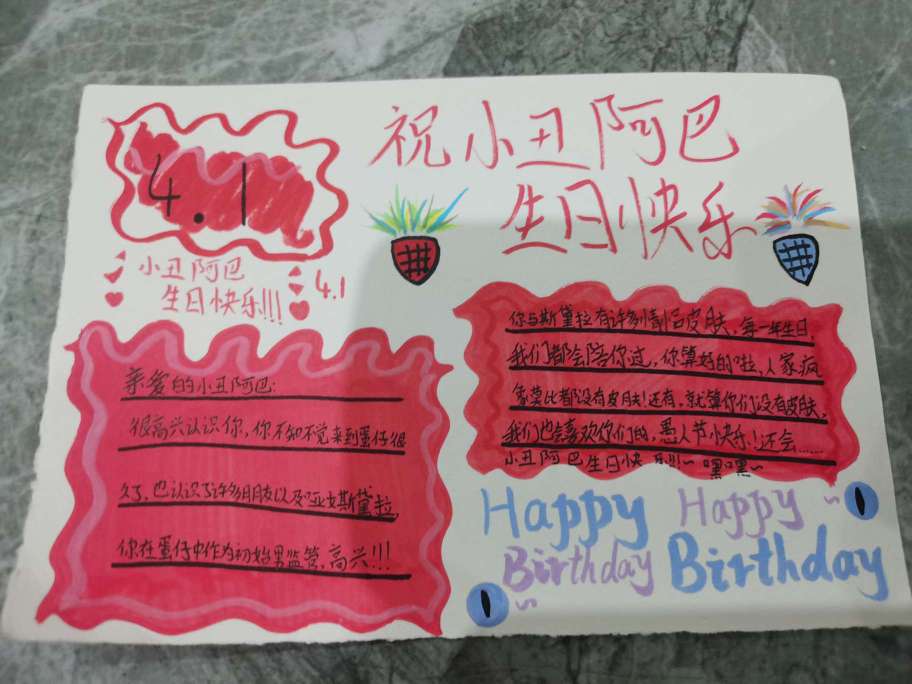 4.1
祝小丑阿巴
生日快乐
小丑阿巴
生日快乐!!!
4.1
亲爱的小丑阿巴:
很高兴认识你,你不知不觉来到蛋仔很
久了,也认识了许多朋友以及哑女斯黛拉,
你在蛋仔中作为初始男监管,高兴!!!
你与斯黛拉有许多情侣皮肤,每一年生日
我们都会陪你过,你算好的啦,人家疯
像莫比都没有皮肤!还有,就算你们没有皮肤,
我们也会喜欢你们的,愚人节小快乐!还会……
小丑阿巴生日快乐!!~嘿嘿~
Happy Happy
Birthday Birthday